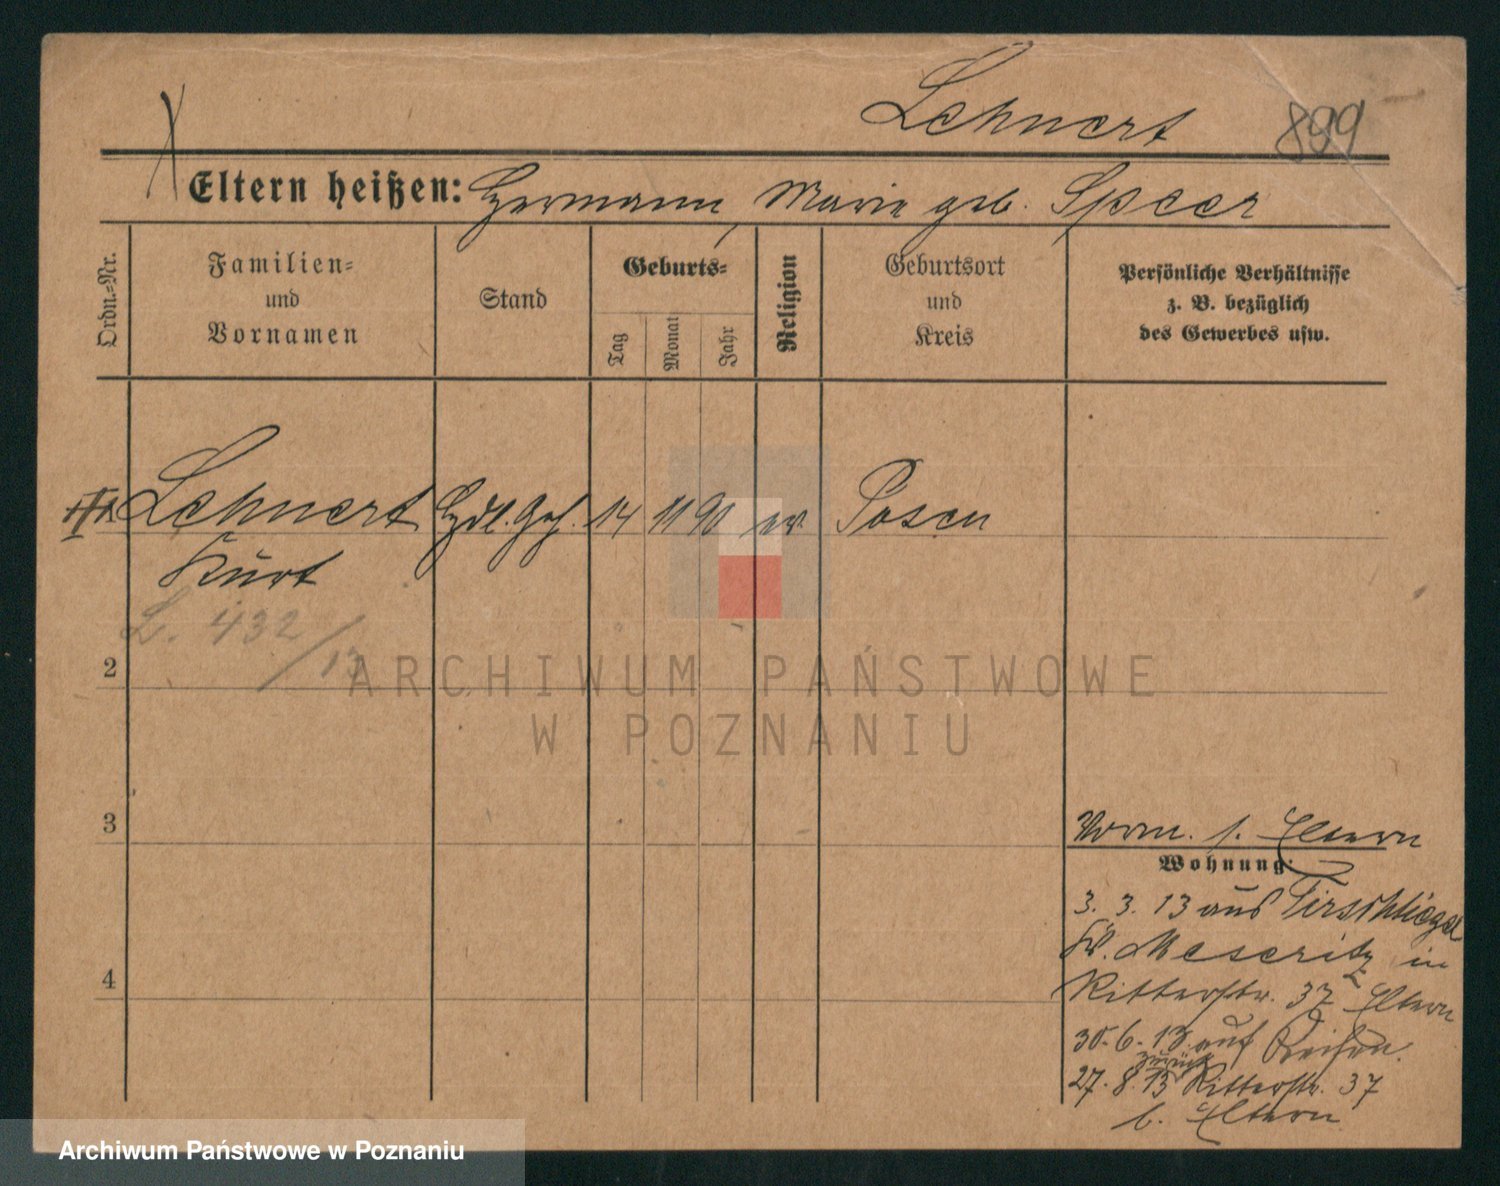 Lehnert 899
Eltern heißen: Hermann, Marie geb. Speer
Ordn.=Nr.
Familien=
und
Vornamen
Stand
Geburts=
Tag
Monat
Jahr
Religion
Geburtsort
und
Kreis
Persönliche Verhältnisse
z. B. bezüglich
des Gewerbes usw.
Lehnert Hdl. Geh. 14 11 90 ev. Posen
Kurt
L. 432/13
2
3
4
ARCHIWUM PAŃSTWOWE
W POZNANIU
Vorm. s. Eltern
Wohnung:
3. 3. 13 aus Tirschtiegel
Kr. Meseritz in
Ritterstr. 37 Eltern
30. 6. 13 auf Reisen.
zurück
27. 8. 13 Ritterstr. 37
b. Eltern
Archiwum Państwowe w Poznaniu